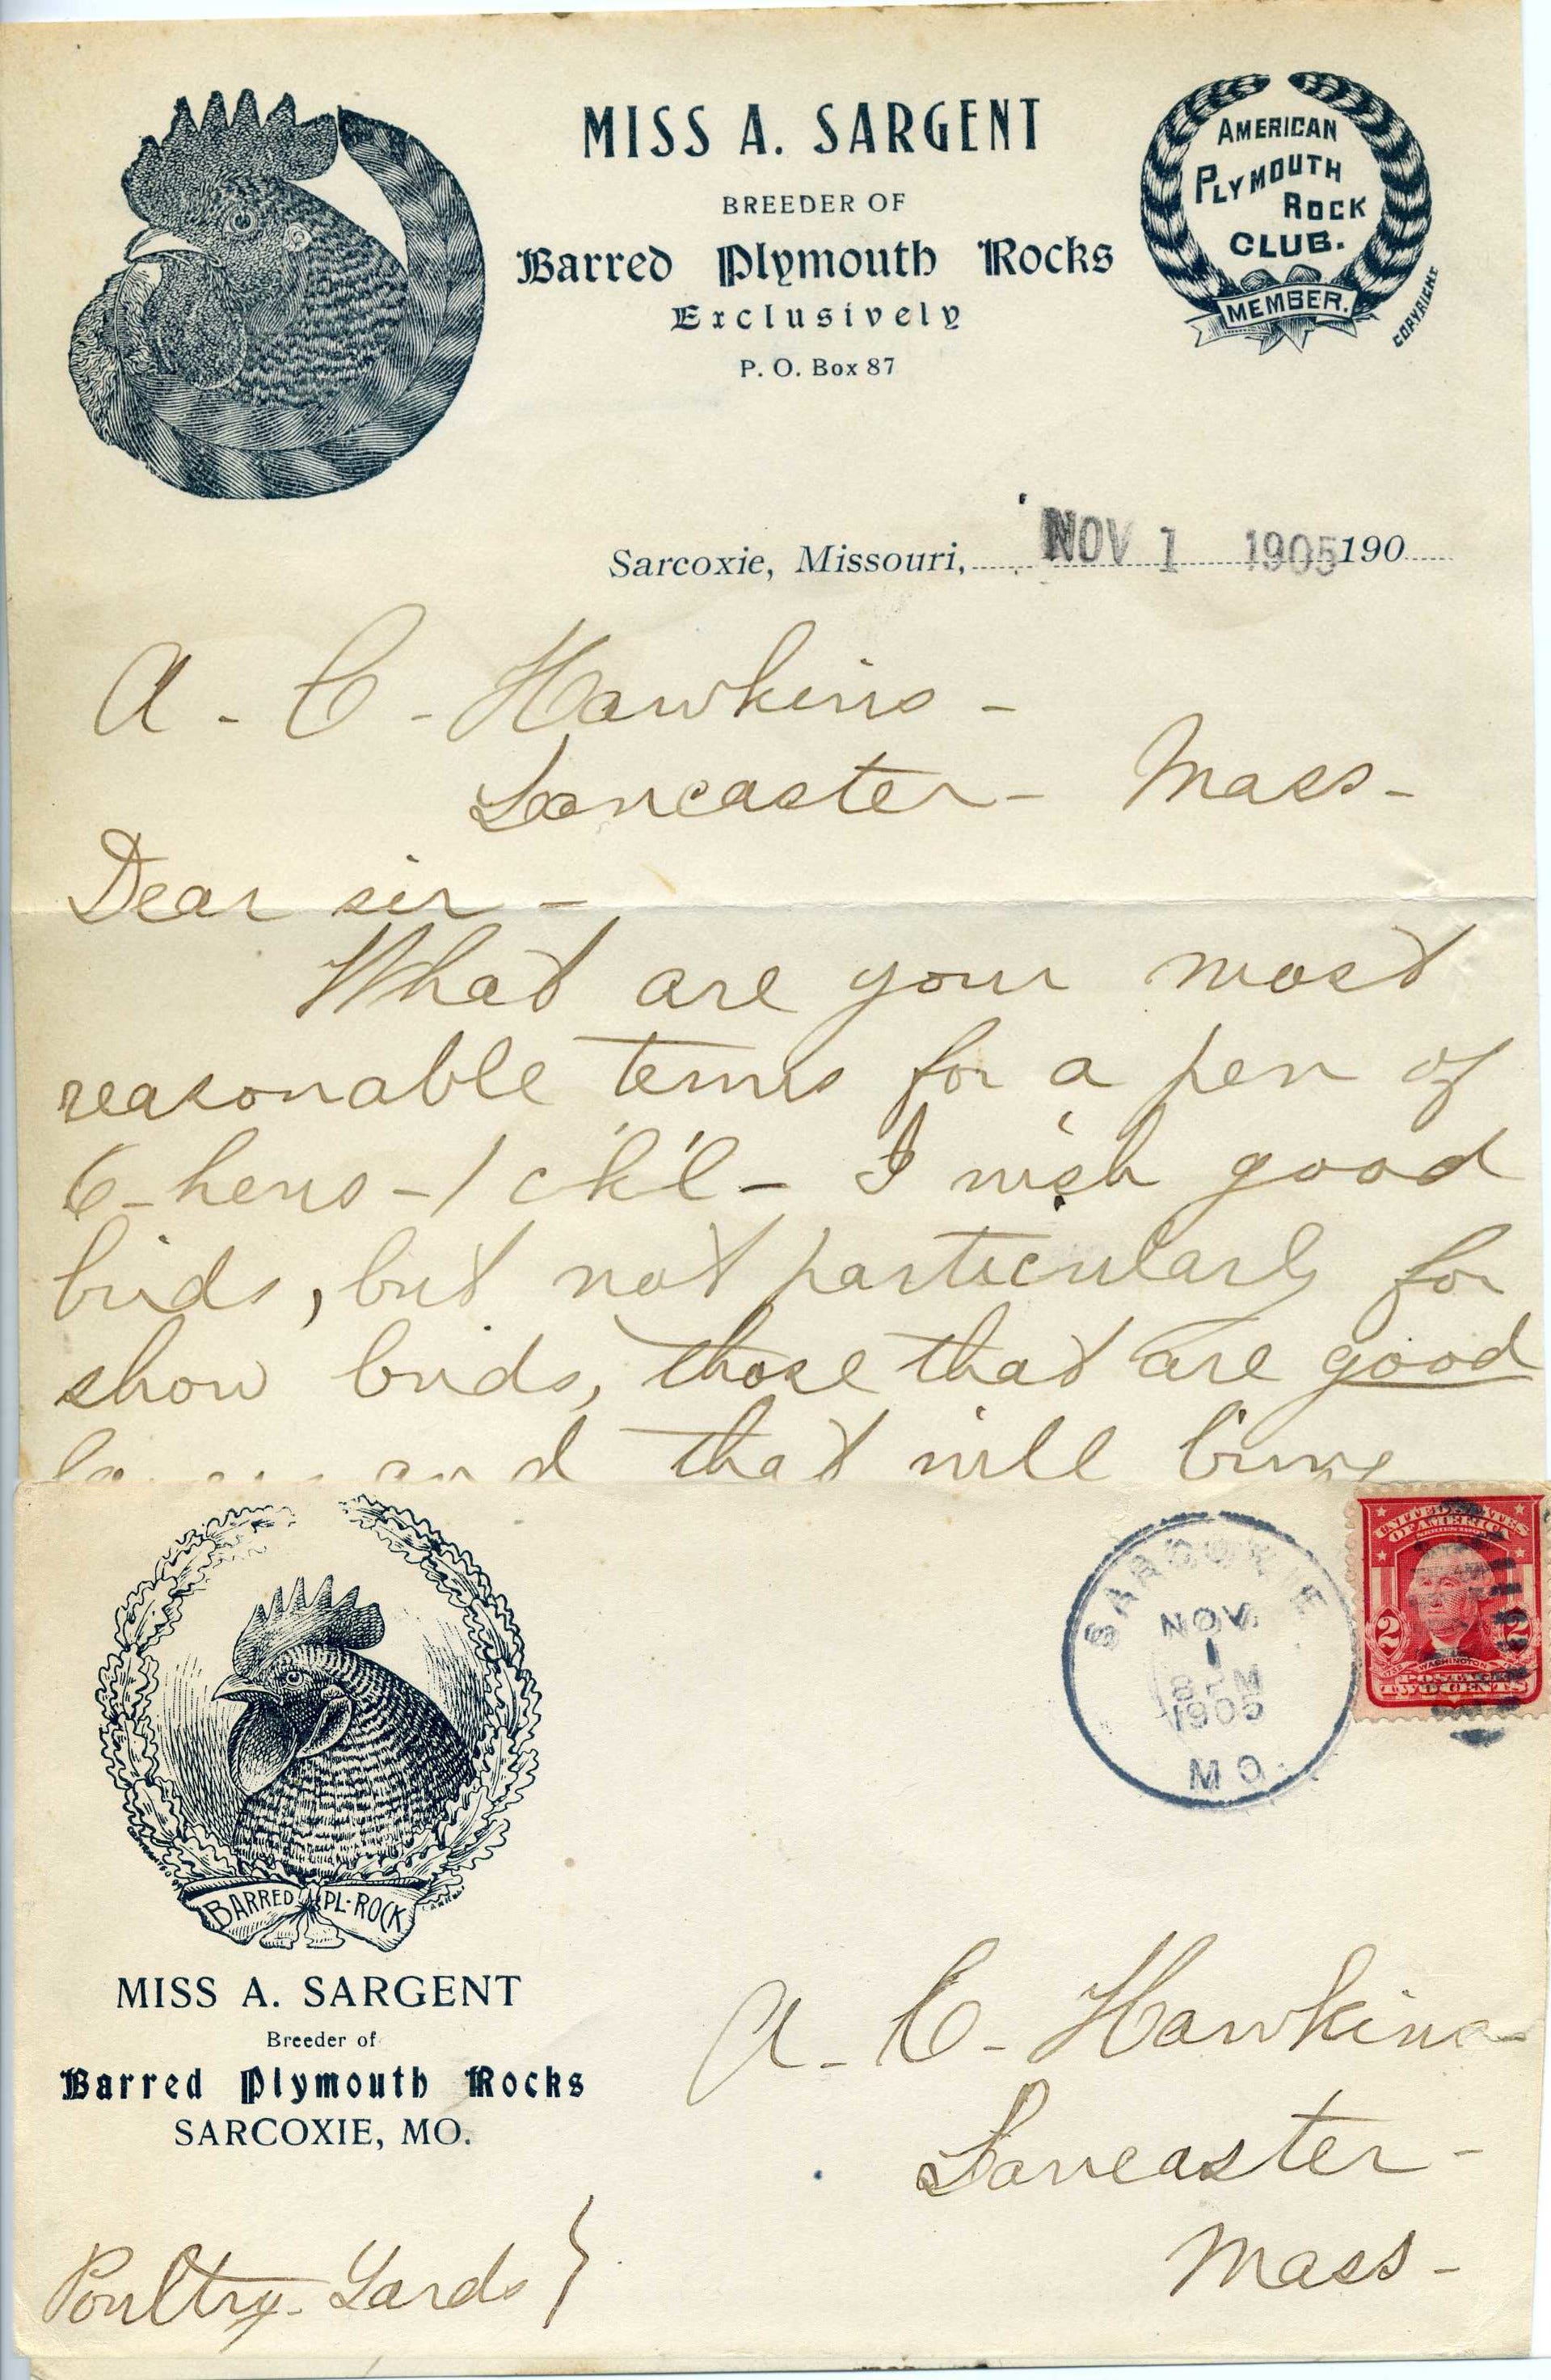 MISS A. SARGENT
BREEDER OF
Barred Plymouth Rocks
Exclusively
P. O. Box 87
AMERICAN
PLYMOUTH
ROCK
CLUB.
MEMBER.
COPYRIGHT
Sarcoxie, Missouri, NOV 1 1905 190
A - C - Hawkins -
Lancaster - Mass -
Dear sir -
What are your most
reasonable terms for a pen of
6 - hens - 1 ck'l - I wish good
birds, but not particularly for
show birds, those that are good
and that will bring
SARCOXIE
NOV
1
8 PM
1905
MO.
UNITED STATES
OF AMERICA
2 2
WASHINGTON
POSTAGE
TWO CENTS
BARRED PL-ROCK
MISS A. SARGENT
Breeder of
Barred Plymouth Rocks
SARCOXIE, MO.
A - C - Hawkins -
Lancaster -
Mass -
Poultry - Yards }